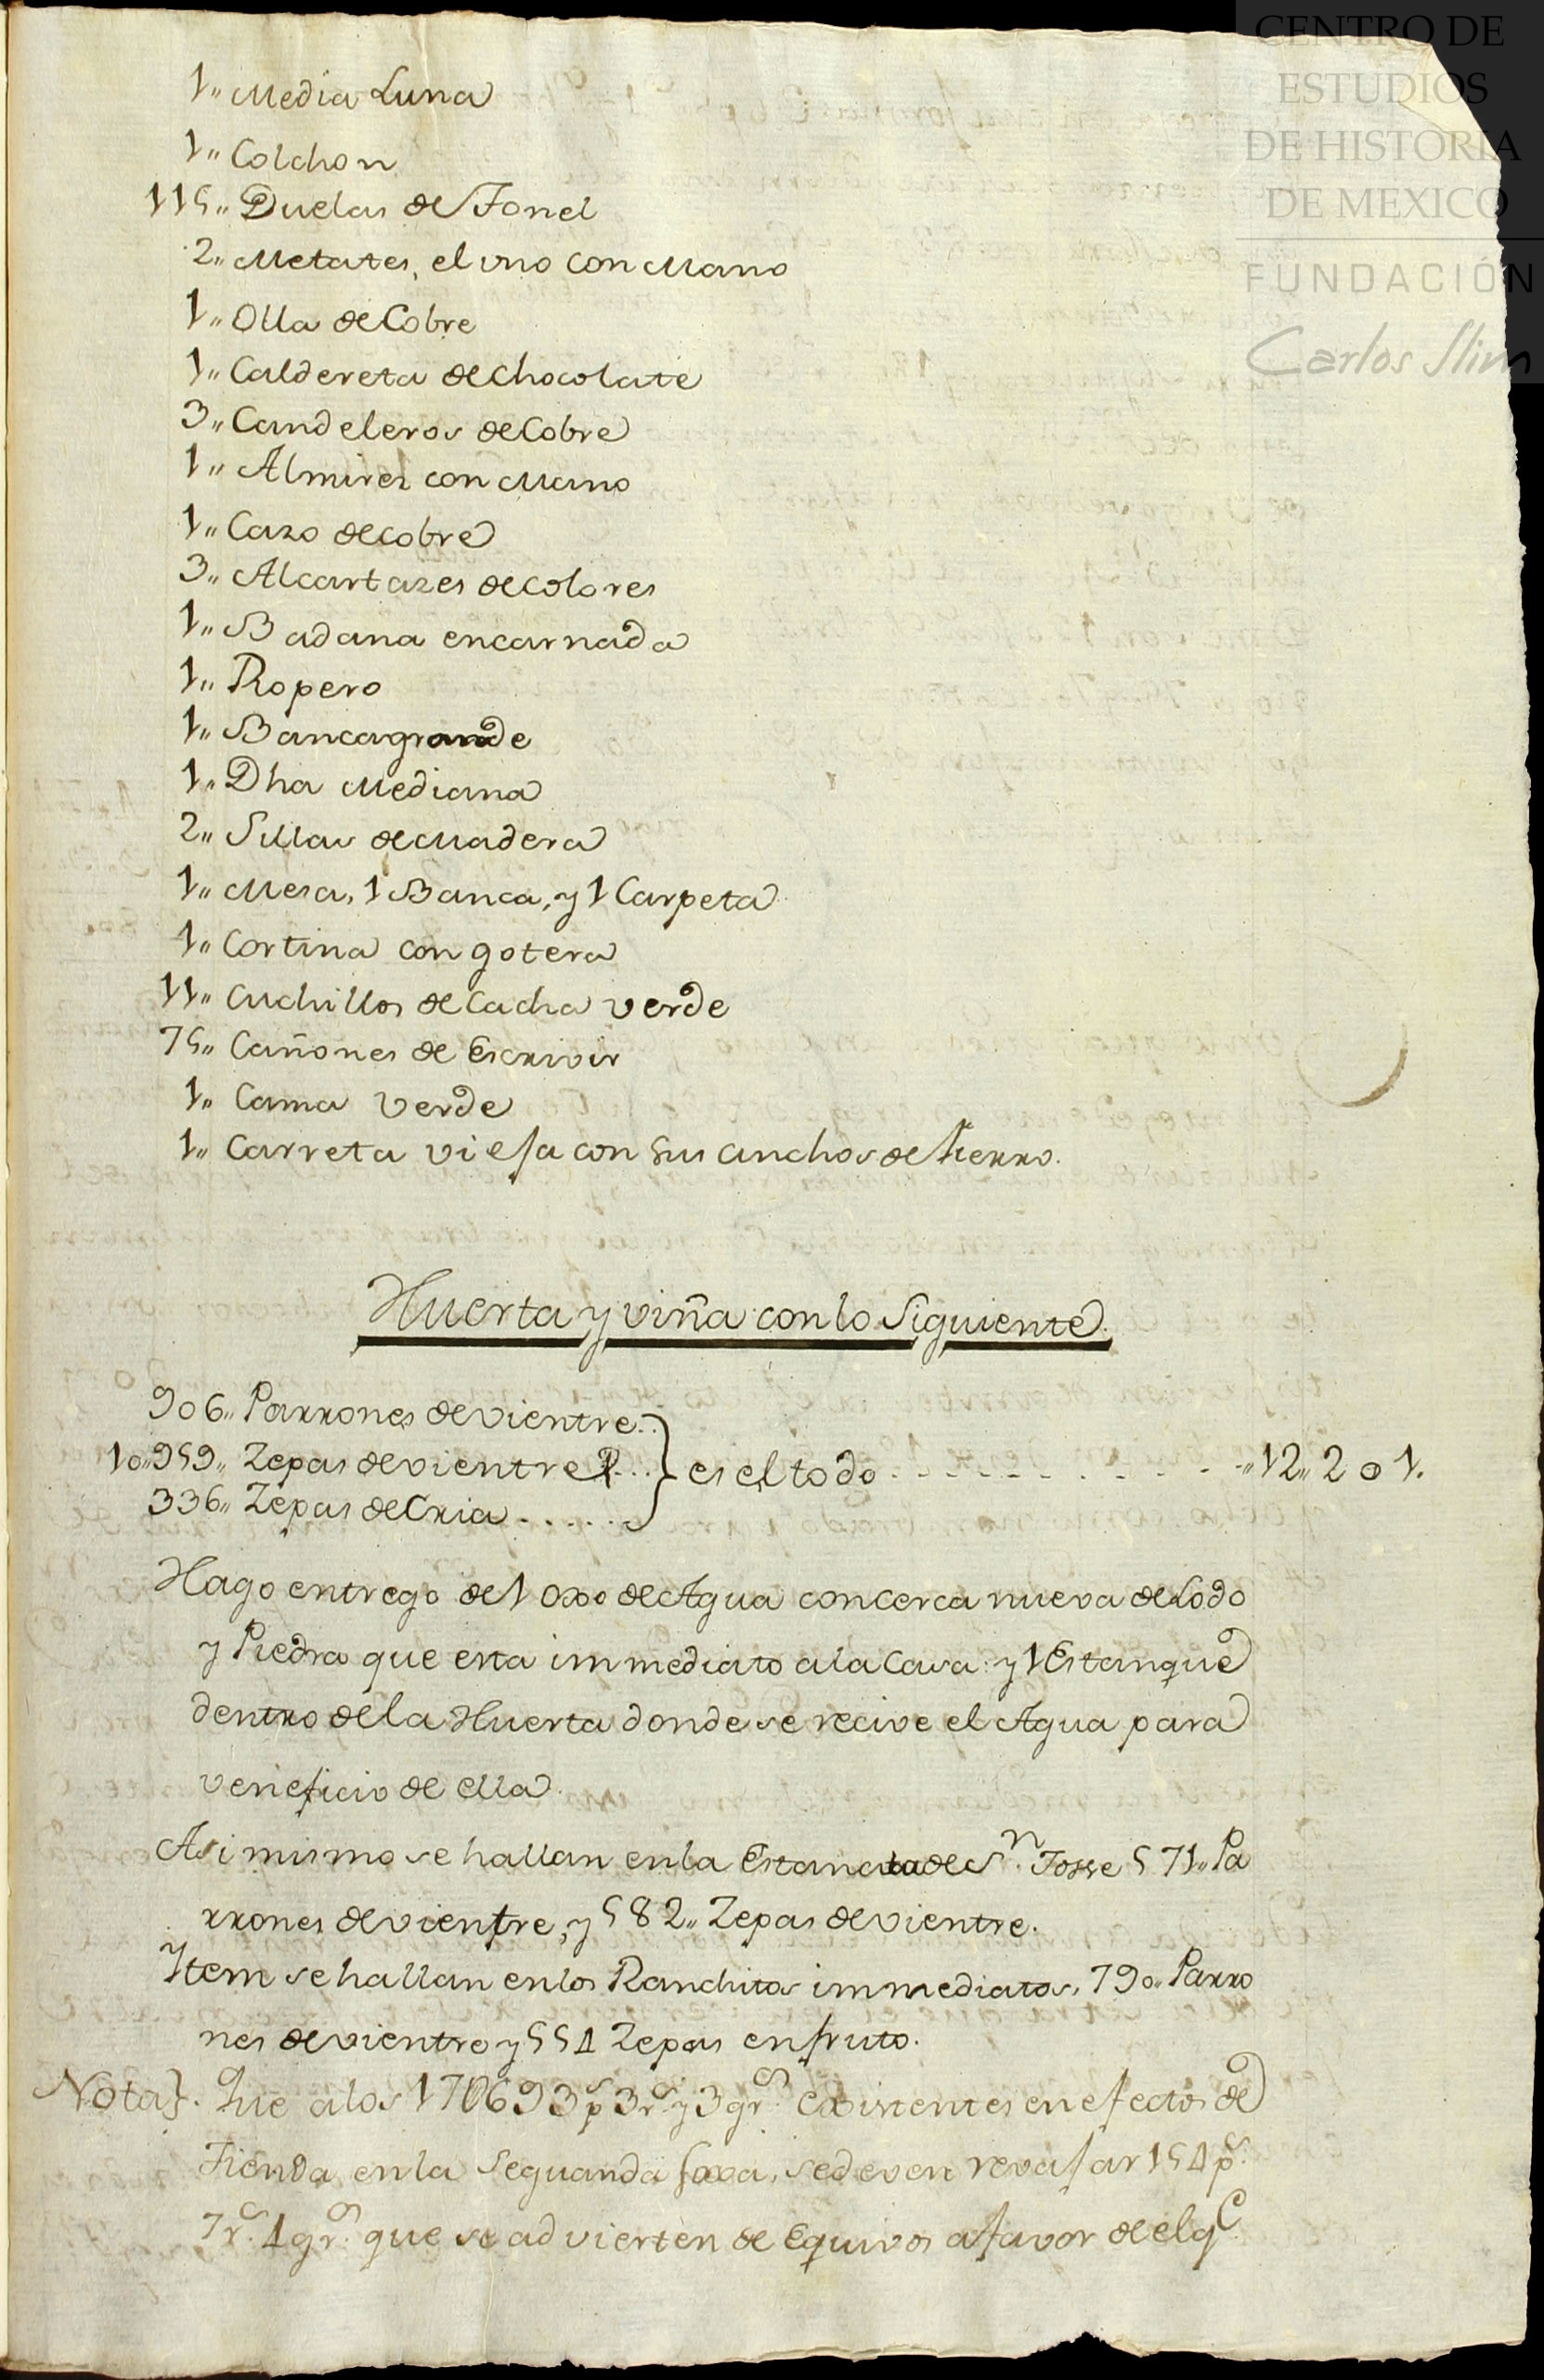 CENTRO DE
ESTUDIOS
DE HISTORIA
DE MEXICO
FUNDACIÓN
Carlos Slim
1,, Media Luna
1,, Colchon
115,, Duelas de Tonel
2,, Metates, el vno con Mano
1,, Olla de Cobre
1,, Caldereta de Chocolate
3,, Candeleros de Cobre
1,, Almirez con Mano
1,, Cazo de cobre
3,, Alcartazes de colores
1,, Badana encarnada
1,, Ropero
1,, Banca grande
1,, Dha Mediana
2,, Sillas de Madera
1,, Mesa, 1 Banca, y 1 Carpeta
1,, Cortina con gotera
11,, Cuchillos de Cacha verde
75,, Cañones de Escrivir
1,, Cama verde
1,, Carreta viefa con sus anchos de hierro.
Huerta y viña con lo Siguiente.
906,, Parrones de vientre..
10,,959,, Zepas de vientre... } es el todo - - - - - - - - - - - ,,12,, 2 0 1.
336,, Zepas de Cria......
Hago entrego de 1 oxo de Agua con cerca nueva de Lodo
y Piedra que esta immediato a la Casa: y 1 Estanque
dentro de la Huerta donde se recive el Agua para
veneficio de ella.
Asi mismo se hallan en la Estancia de Sn. Josse 571,, Pa
rrones de vientre, y 582,, Zepas de vientre.
Ytem se hallan en los Ranchitos immediatos, 790,, Parro
nes de vientre y 554 Zepas en fruto.
Nota}. Que a los 170693 ps 3 rs. y 3 grs. existentes en efectos de
Tienda en la seguanda foxa, se deven revafar 154 ps.
7 rs. 4 grs. que se advierten de Equivos a favor de el qe.